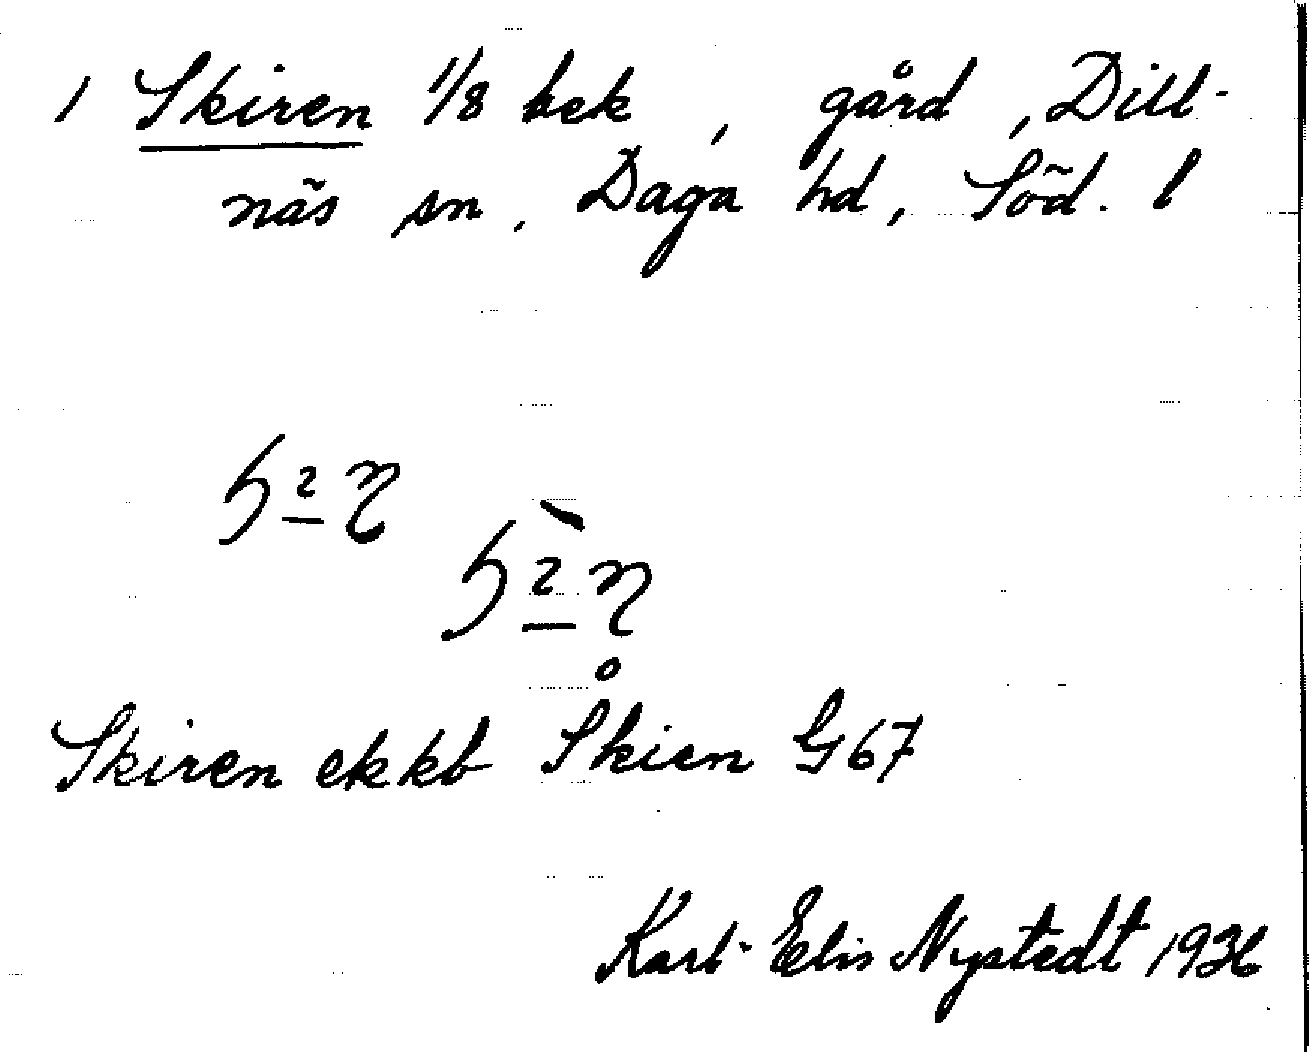 1 Skiren 1/8 bek , gård , Dill-
näs sn , Daga hd , Söd. l
Skiren ekkb Skien G67
Karl-Elis Nystedt 1936